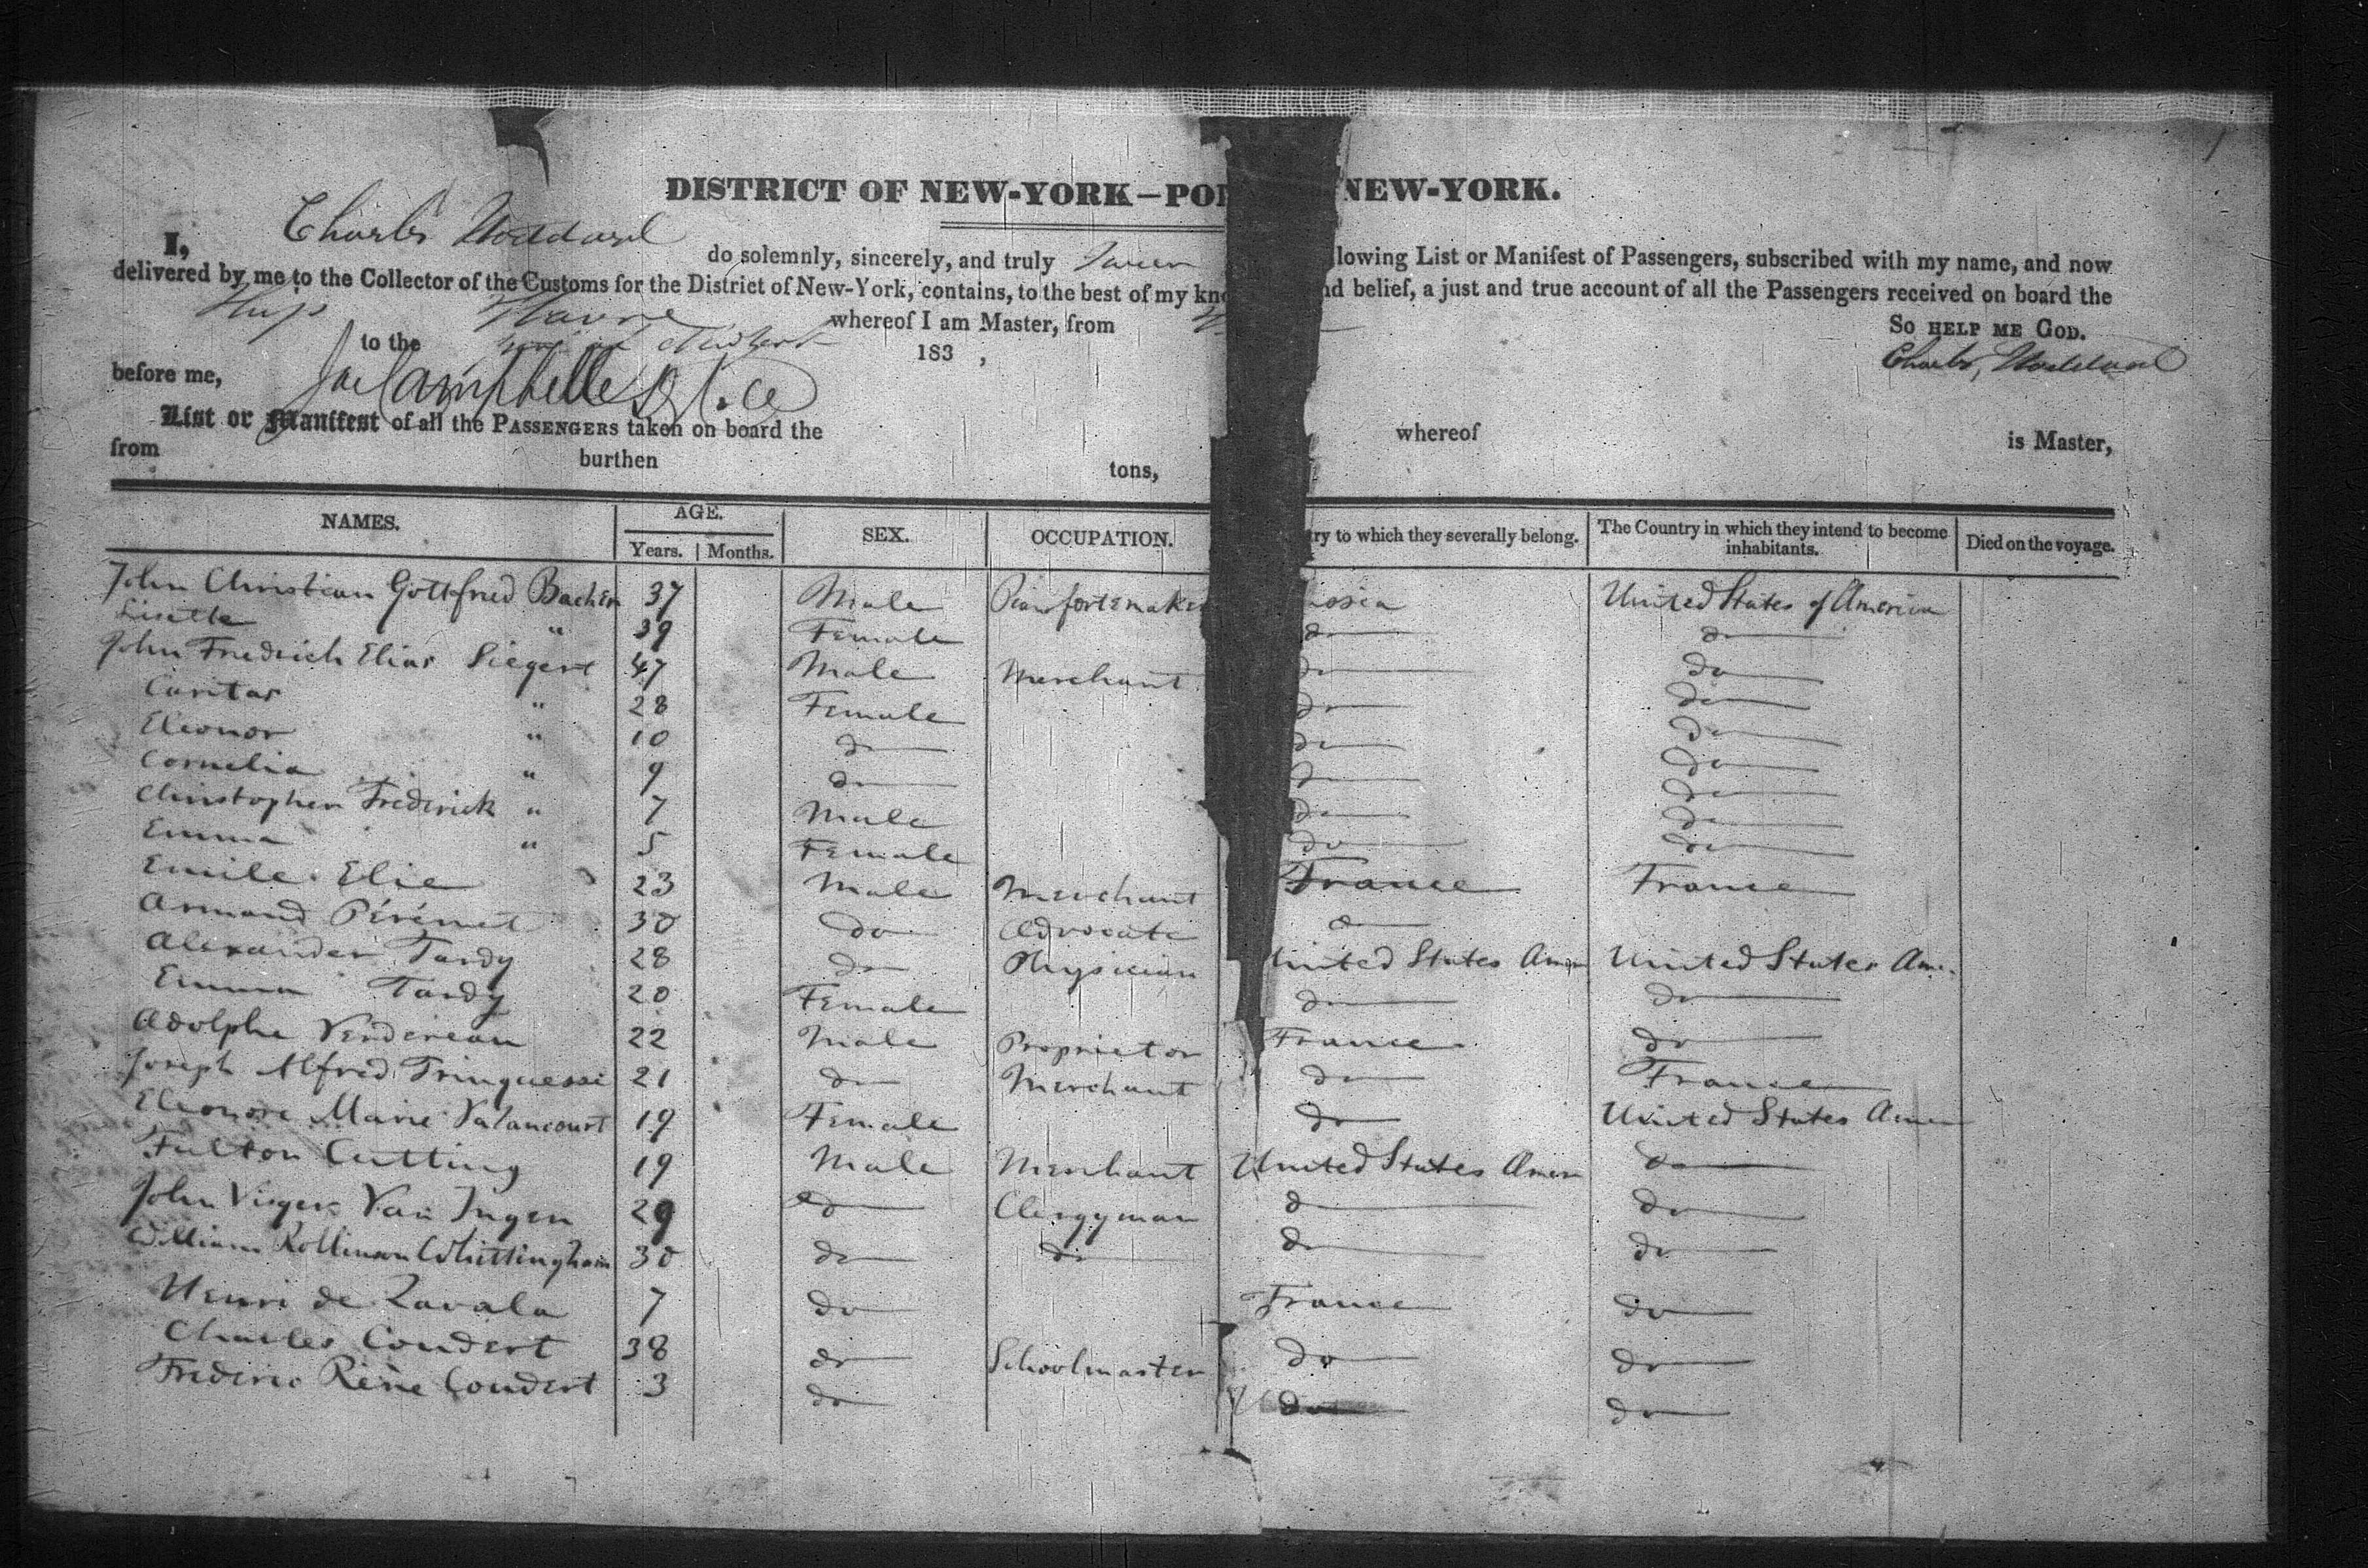 DISTRICT OF NEW-YORK—POR NEW-YORK.
I, Charles Stoddard do solemnly, sincerely, and truly swear llowing List or Manifest of Passengers, subscribed with my name, and now
delivered by me to the Collector of the Customs for the District of New-York, contains, to the best of my kno nd belief, a just and true account of all the Passengers received on board the
Ship Havre whereof I am Master, from
SO HELP ME GOD.
to the 183 ,
Charles Stoddard
before me,
List or Manifest of all the PASSENGERS taken on board the whereof is Master,
from burthen tons,
NAMES. AGE. SEX. OCCUPATION. ry to which they severally belong. The Country in which they intend to become inhabitants. Died on the voyage.
Years. Months.
John Christian Gottfried Bacher 37 Male Pianofortemaker ussia United States of America
Lisette " 39 Female do do
John Friedrich Elias Siegert 47 Male Merchant do do
Caritas " 28 Female do do
Eleonor " 10 do do do
Cornelia " 9 do do do
Christopher Frederick " 7 Male do do
Emma " 5 Female do do
Emile Elie 23 Male Merchant France France
Armand 30 do Advocate do
Alexander Tardy 28 do Physician United States Amer United States Am.
Emma Tardy 20 Female do do
Adolphe Verdereau 22 Male Proprietor France do
Joseph Alfred Trinquesse 21 do Merchant do France
Eleonore Marie Valancourt 19 Female do United States Amer
Fulton Cutting 19 Male Merchant United States Amer do
John Visger Van Ingen 29 do Clergyman do do
William Rollinson Whittingham 30 do do do do
Henri de Zavala 7 do France do
Charles Coudert 38 do Schoolmaster do do
Frederic Réné Coudert 3 do do do